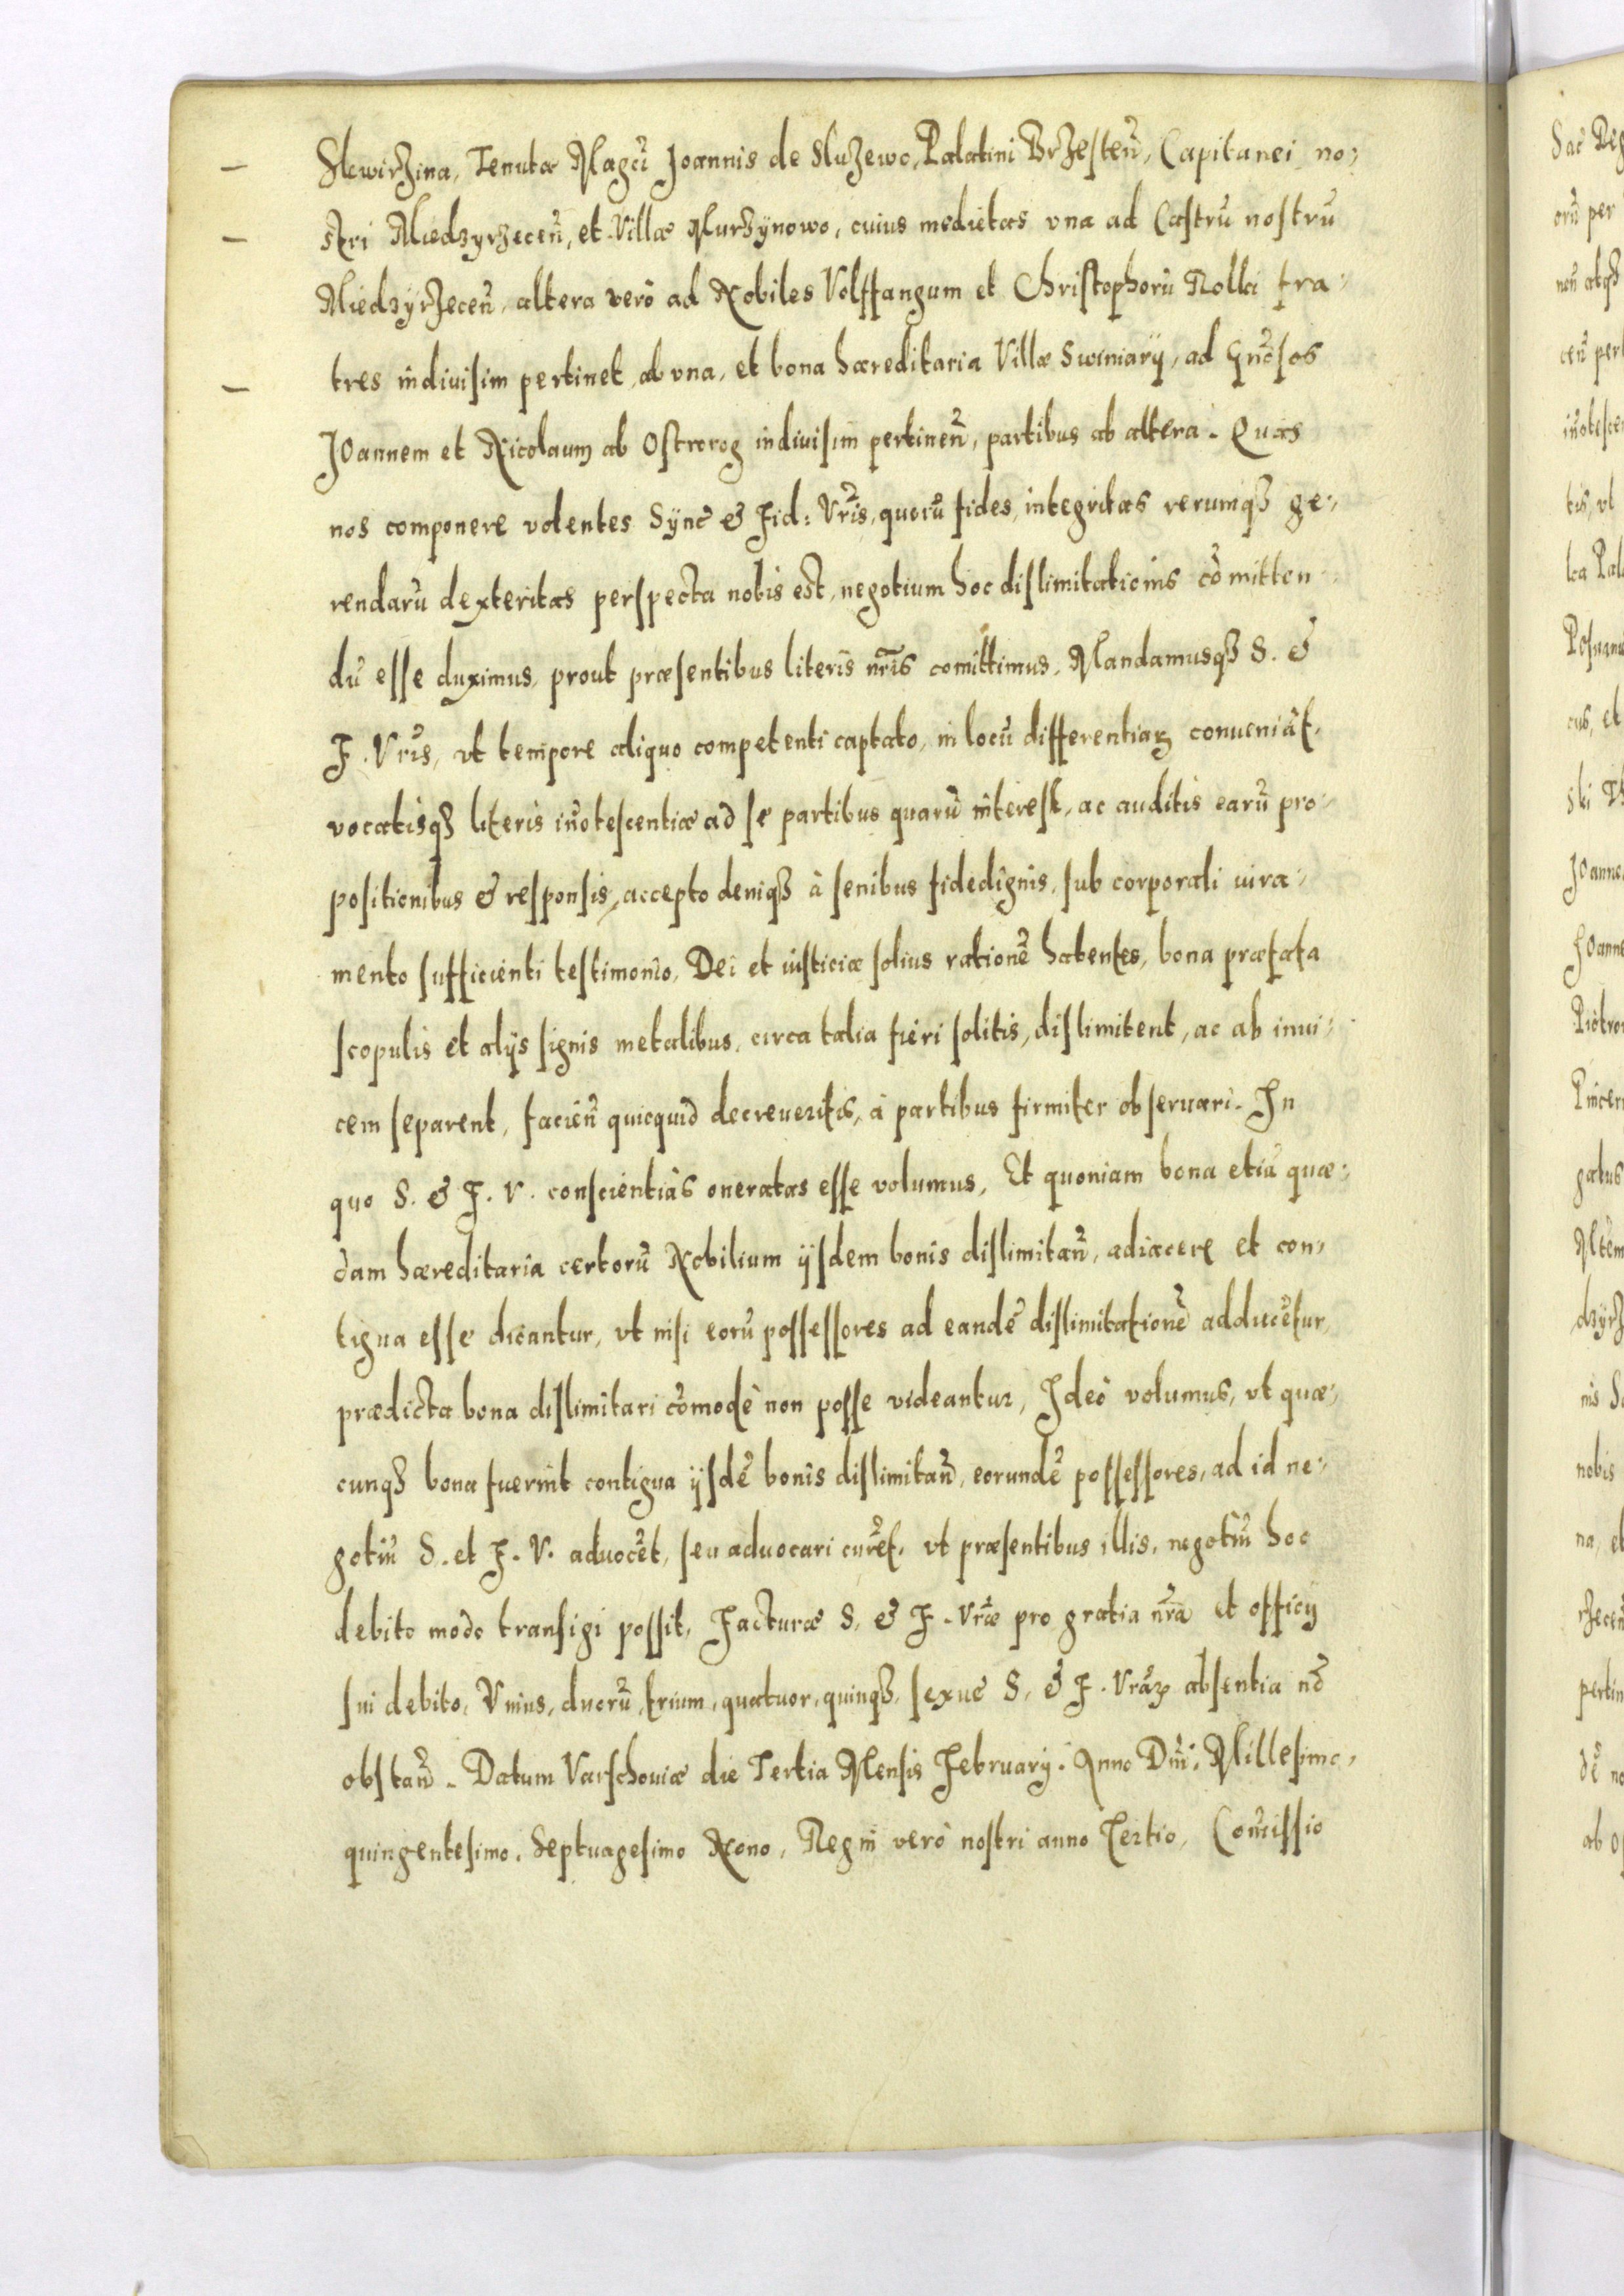 Skwirzina, Tenutæ Magcī Joannis de Sluzewo, Palatini Brzesteñ, Capitanei no:
stri Miedzyrzeceñ, et Villæ Kurzÿnowo, cuius medietas vna ad Castrũ nostrũ
Miedzÿrzeceñ, altera verò ad Nobiles Volffangum et Christophorũ Nolki fra:
tres indiuisim pertinet, ab vna, et bona hæreditaria Villæ Swiniarÿ, ad Gñosos
Joannem et Nicolaum ab Ostrorog indiuisim pertineñ, partibus ab altera. Quas
nos componere volentes Sync̃ & Fid: Vr̃is, quorũ fides, integritas rerumqꝫ ge:
rendarũ dexteritas perspecta nobis est, negotium hoc dislimitationis cõmitten
dũ esse duximus, prout præsentibus literis nr̃is comittimus. Mandamusqꝫ S. &
F. Vr̃is, vt tempore aliquo competenti captato, in locũ differentiaꝝ conueniãt,
vocatisqꝫ literis iñotescentiæ ad se partibus quarũ interest, ac auditis earũ pro:
positionibus & responsis, accepto deniqꝫ à senibus fidedignis, sub corporali iura:
mento sufficienti testimonio, Dei et iusticiæ solius rationẽ habentes, bona præfata
scopulis et alÿs signis metalibus, circa talia fieri solitis, dislimitent, ac ab inui:
cem separent, facieñ quicquid decreueritis, à partibus firmiter obseruari. In
quo S. & F. V. conscientias oneratas esse volumus, Et quoniam bona etiã quæ:
dam hæreditaria certorũ Nobilium ÿsdem bonis dislimitañ, adiacere et con:
tigua esse dicantur, vt nisi eorũ possessores ad eandẽ dislimitationẽ adducẽtur,
prædicta bona dislimitari cõmodè non posse videantur, Ideò volumus, vt quæ:
cunqꝫ bona fuerint contigua ÿsdẽ bonis dislimitañ, eorundẽ possessores, ad id ne:
gotiũ S. et F. V. aduocẽt, seu aduocari curẽt, vt præsentibus illis, negotiũ hoc
debito modo transigi possit, Facturæ S, & F. Vr̃æ pro gratia nr̃a et officÿ
sui debito, Vnius, duorũ, trium, quatuor, quinqꝫ, sexue S, & F. Vr̃aꝝ absentia nõ
obstañ. Datum Varschouiæ die Tertia Mensis Februarÿ. Anno Dñi. Millesimo,
quingentesimo, Septuagesimo Nono, Regni verò nostri anno Tertio, Com̃issio